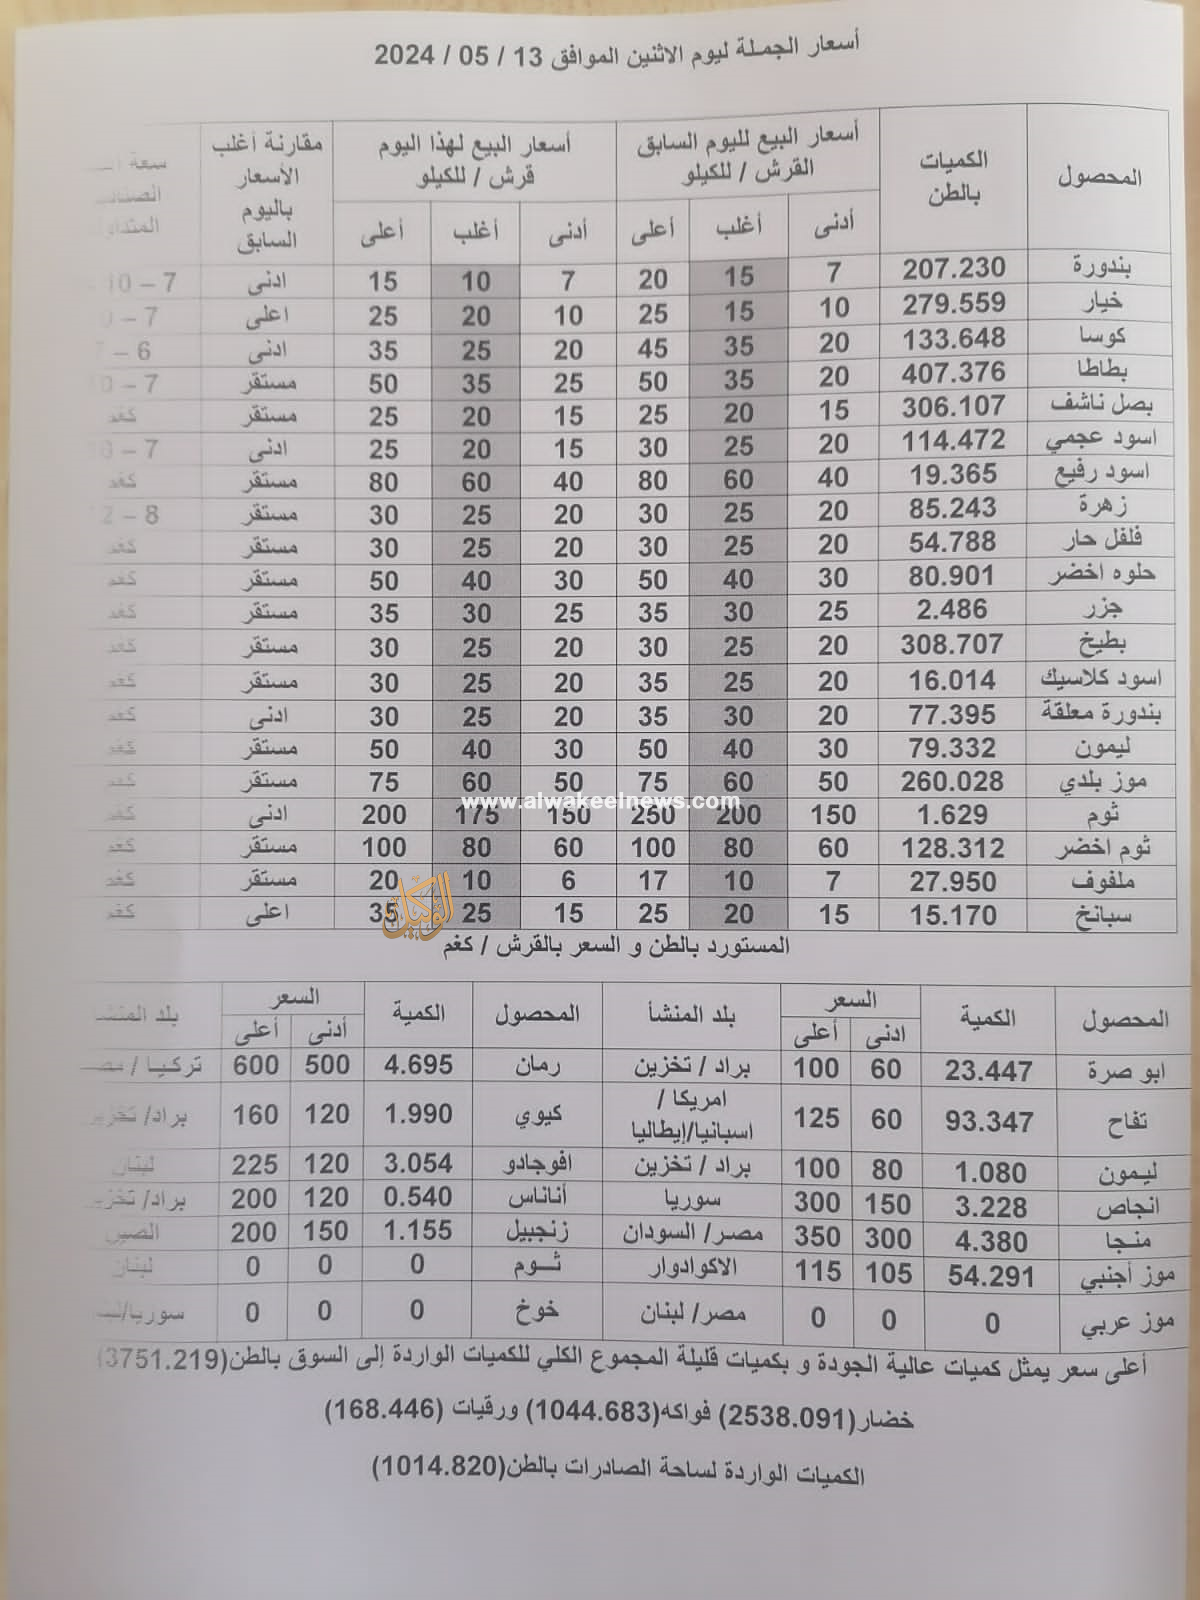 أسعار الجملة ليوم الاثنين الموافق 13 / 05 / 2024
المحصول الكميات بالطن أسعار البيع لليوم السابق القرش / للكيلو أسعار البيع لهذا اليوم قرش / للكيلو مقارنة أغلب الأسعار باليوم السابق سعة
أدنى أغلب أعلى أدنى أغلب أعلى
بندورة 207.230 7 15 20 7 10 15 ادنى 7 – 10
خيار 279.559 10 15 25 10 20 25 اعلى 7 –
كوسا 133.648 20 35 45 20 25 35 ادنى 6 –
بطاطا 407.376 20 35 50 25 35 50 مستقر 7 –
بصل ناشف 306.107 15 20 25 15 20 25 مستقر كغم
اسود عجمي 114.472 20 25 30 15 20 25 ادنى 7 –
اسود رفيع 19.365 40 60 80 40 60 80 مستقر كغم
زهرة 85.243 20 25 30 20 25 30 مستقر 8 –
فلفل حار 54.788 20 25 30 20 25 30 مستقر كغم
حلوه اخضر 80.901 30 40 50 30 40 50 مستقر كغم
جزر 2.486 25 30 35 25 30 35 مستقر كغم
بطيخ 308.707 20 25 30 20 25 30 مستقر كغم
اسود كلاسيك 16.014 20 25 35 20 25 30 مستقر كغم
بندورة معلقة 77.395 20 30 35 20 25 30 ادنى كغم
ليمون 79.332 30 40 50 30 40 50 مستقر كغم
موز بلدي 260.028 50 60 75 50 60 75 مستقر كغم
www.alwakeelnews.com
ثوم 1.629 150 200 250 150 175 200 ادنى كغم
ثوم اخضر 128.312 60 80 100 60 80 100 مستقر كغم
ملفوف 27.950 7 10 17 6 10 20 مستقر كغم
سبانخ 15.170 15 20 25 15 25 35 اعلى كغم
الوكيل
المستورد بالطن و السعر بالقرش / كغم
المحصول الكمية السعر بلد المنشأ المحصول الكمية السعر بلد المنشأ
ادنى أعلى أدنى أعلى
ابو صرة 23.447 60 100 براد / تخزين رمان 4.695 500 600 تركيا /
تفاح 93.347 60 125 امريكا / اسبانيا/إيطاليا كيوي 1.990 120 160 براد/ تخزين
ليمون 1.080 80 100 براد / تخزين افوجادو 3.054 120 225 لبنان
انجاص 3.228 150 300 سوريا أناناس 0.540 120 200 براد/ تخزين
منجا 4.380 300 350 مصر/ السودان زنجبيل 1.155 150 200 الصين
موز أجنبي 54.291 105 115 الاكوادوار ثوم 0 0 0 لبنان
موز عربي 0 0 0 مصر/ لبنان خوخ 0 0 0 سوريا/
أعلى سعر يمثل كميات عالية الجودة و بكميات قليلة المجموع الكلي للكميات الواردة إلى السوق بالطن(3751.219)
خضار(2538.091) فواكه(1044.683) ورقيات (168.446)
الكميات الواردة لساحة الصادرات بالطن(1014.820)